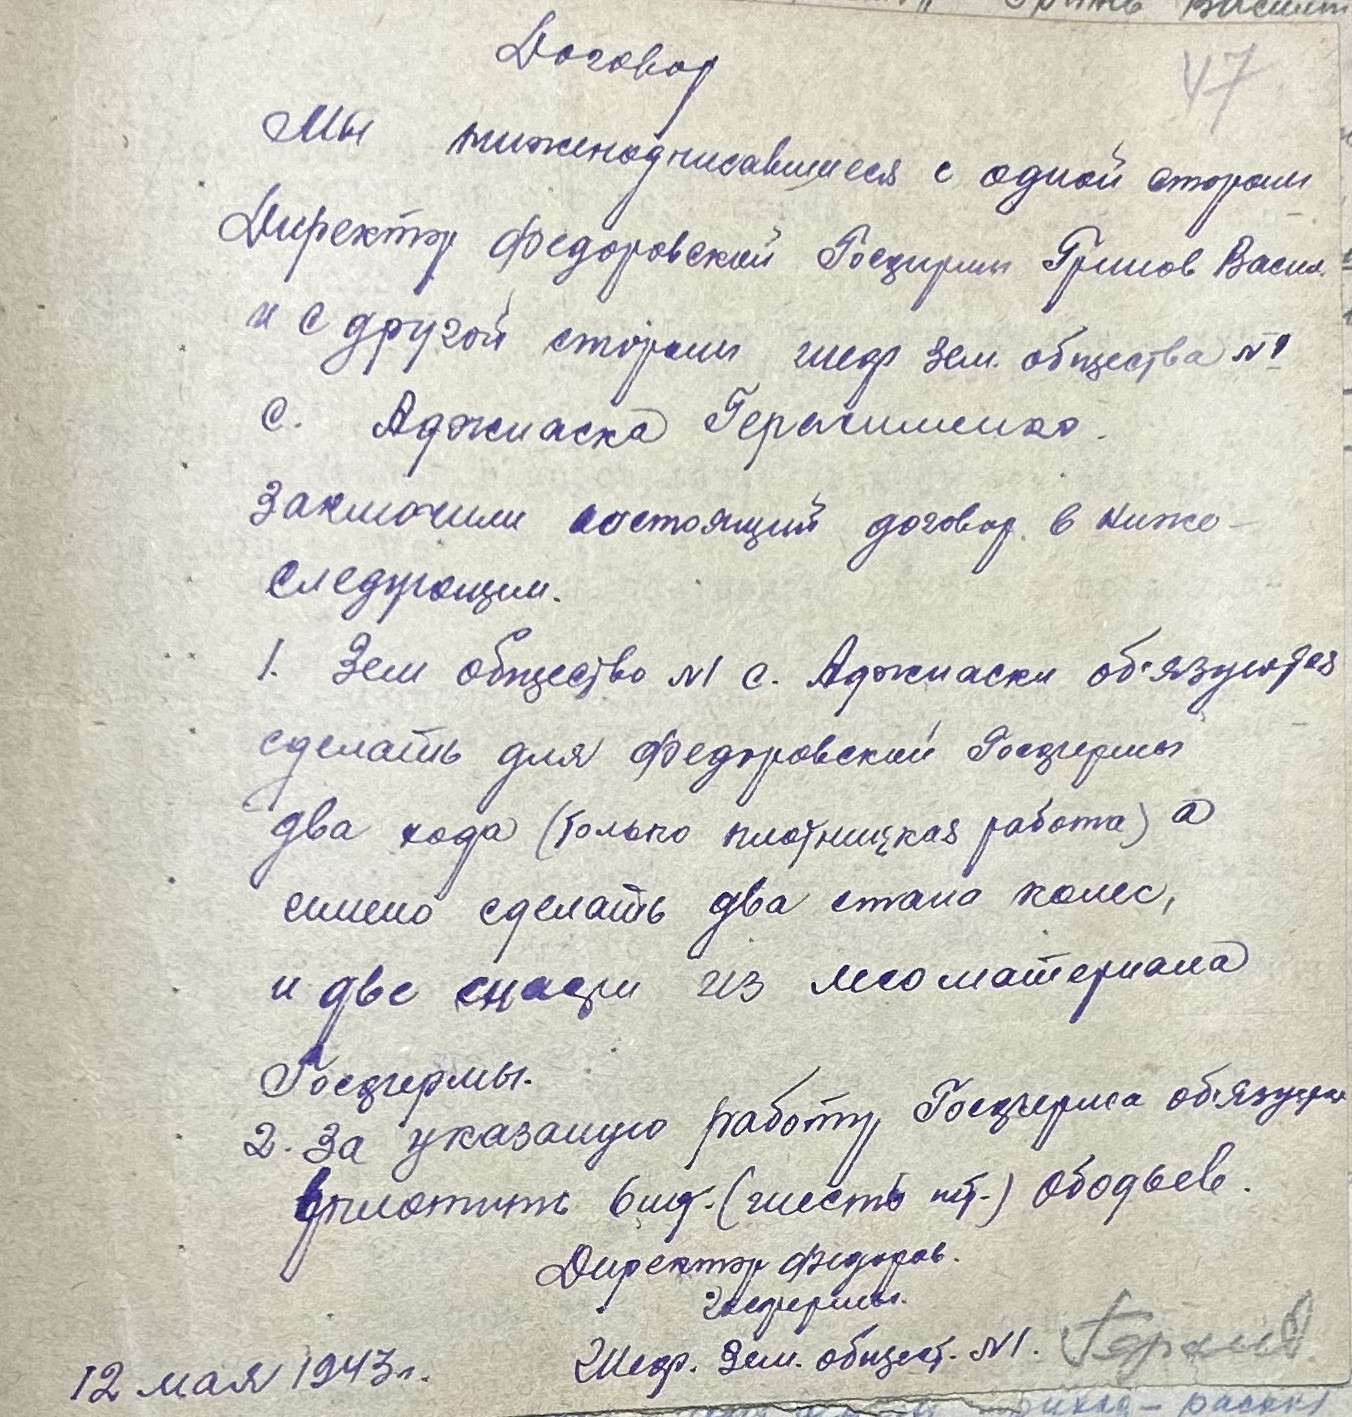 47
Договор
Мы нижеподписавшиеся с одной стороны
Директор Федоровской Госфермы Гринов Васил.
и с другой стороны шеф Зем. общества №1
с. Аджиаска Герасименко.
Заключили настоящий договор в ниже-
следующем.
1. Зем общество №1 с. Аджиаски об'язуется
сделать для Федоровской Госфермы
два хода (только плотницкая работа) а
имено сделать два стана колес,
и две снасти из лесоматериала
Госфермы.
2. За указаную работу Госферма об'язуется
уплотить 6 шт. (шесть шт.) ободьев.
Директор Федоров.
Госфермы.
Шеф. Зем. общест. №1.
12 мая 1943 г.